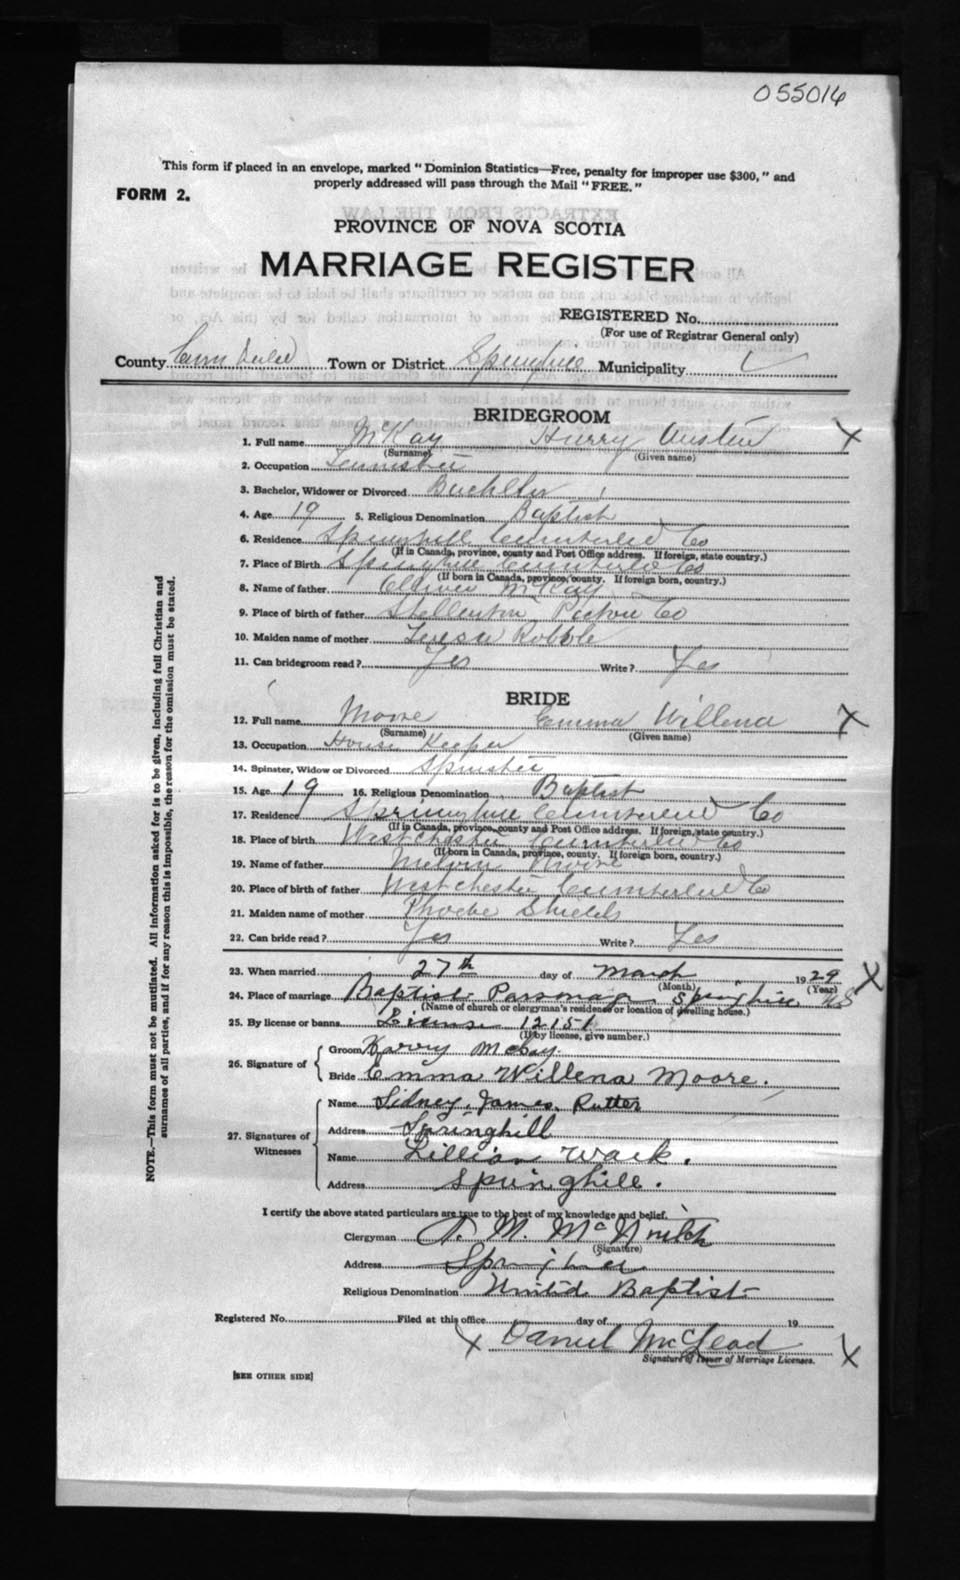 055016
This form if placed in an envelope, marked "Dominion Statistics—Free, penalty for improper use $300," and
properly addressed will pass through the Mail "FREE."
FORM 2.
PROVINCE OF NOVA SCOTIA
MARRIAGE REGISTER
REGISTERED No.
(For use of Registrar General only)
County Town or District Springhill Municipality
BRIDEGROOM
1. Full name McKay Harry Austin X
(Surname) (Given name)
2. Occupation Teamster
3. Bachelor, Widower or Divorced Bachlor
4. Age 19 5. Religious Denomination Baptist
6. Residence Springhill Cumberled Co
(If in Canada, province, county and Post Office address. If foreign, state country.)
7. Place of Birth Springhill Cumberled Co
(If born in Canada, province, county. If foreign born, country.)
8. Name of father McKay
9. Place of birth of father Stellerton Pictou Co
10. Maiden name of mother Teresa
11. Can bridegroom read? Yes Write? Yes
BRIDE
12. Full name Moore Emma Willena X
(Surname) (Given name)
13. Occupation House Keeper
14. Spinster, Widow or Divorced Spinster
15. Age 19 16. Religious Denomination Baptist
17. Residence Springhill Cumberled Co
(If in Canada, province, county and Post Office address. If foreign, state country.)
18. Place of birth Westchester Cumberled Co
(If born in Canada, province, county. If foreign born, country.)
19. Name of father Melvin Moore
20. Place of birth of father Westchester Cumberled Co
21. Maiden name of mother Phoebe Shields
22. Can bride read? Yes Write? Yes
23. When married 27th day of March 1929 X
(Month) (Year)
24. Place of marriage Baptist Parsonage Springhill NS
(Name of church or clergyman's residence or location of dwelling house.)
25. By license or banns License 12151
(If by license, give number.)
26. Signature of
Groom Harry McKay.
Bride Emma Willena Moore.
27. Signatures of Witnesses
Name Sidney, James, Rutter
Address Springhill
Name Lillian Wark.
Address Springhill.
I certify the above stated particulars are true to the best of my knowledge and belief.
Clergyman
(Signature)
Address Springhill
Religious Denomination United Baptist
Registered No. Filed at this office day of 19
X Daniel McLeod X
Signature of Issuer of Marriage Licenses.
[SEE OTHER SIDE]
NOTE.—This form must not be mutilated. All information asked for is to be given, including full Christian and
surnames of all parties, and if for any reason this is impossible, the reason for the omission must be stated.